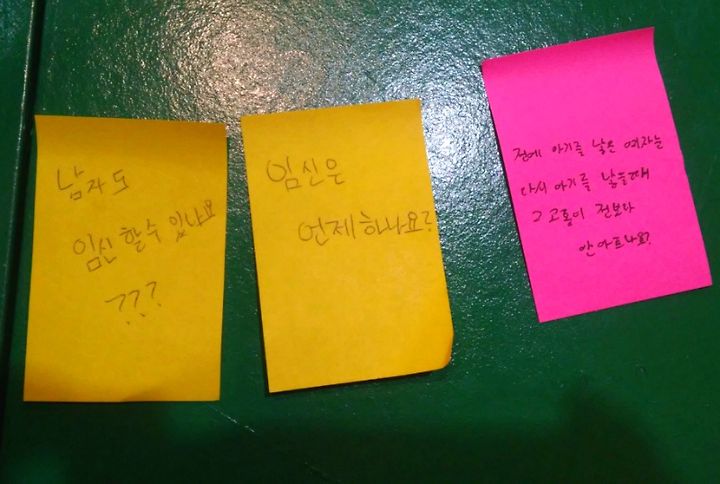 남자도
임신 할수 있나요
???
임신은
언제 하나요?
전에 아기를 낳은 여자는
다시 아기를 낳을때
그 고통이 전보다
안 아프나요?